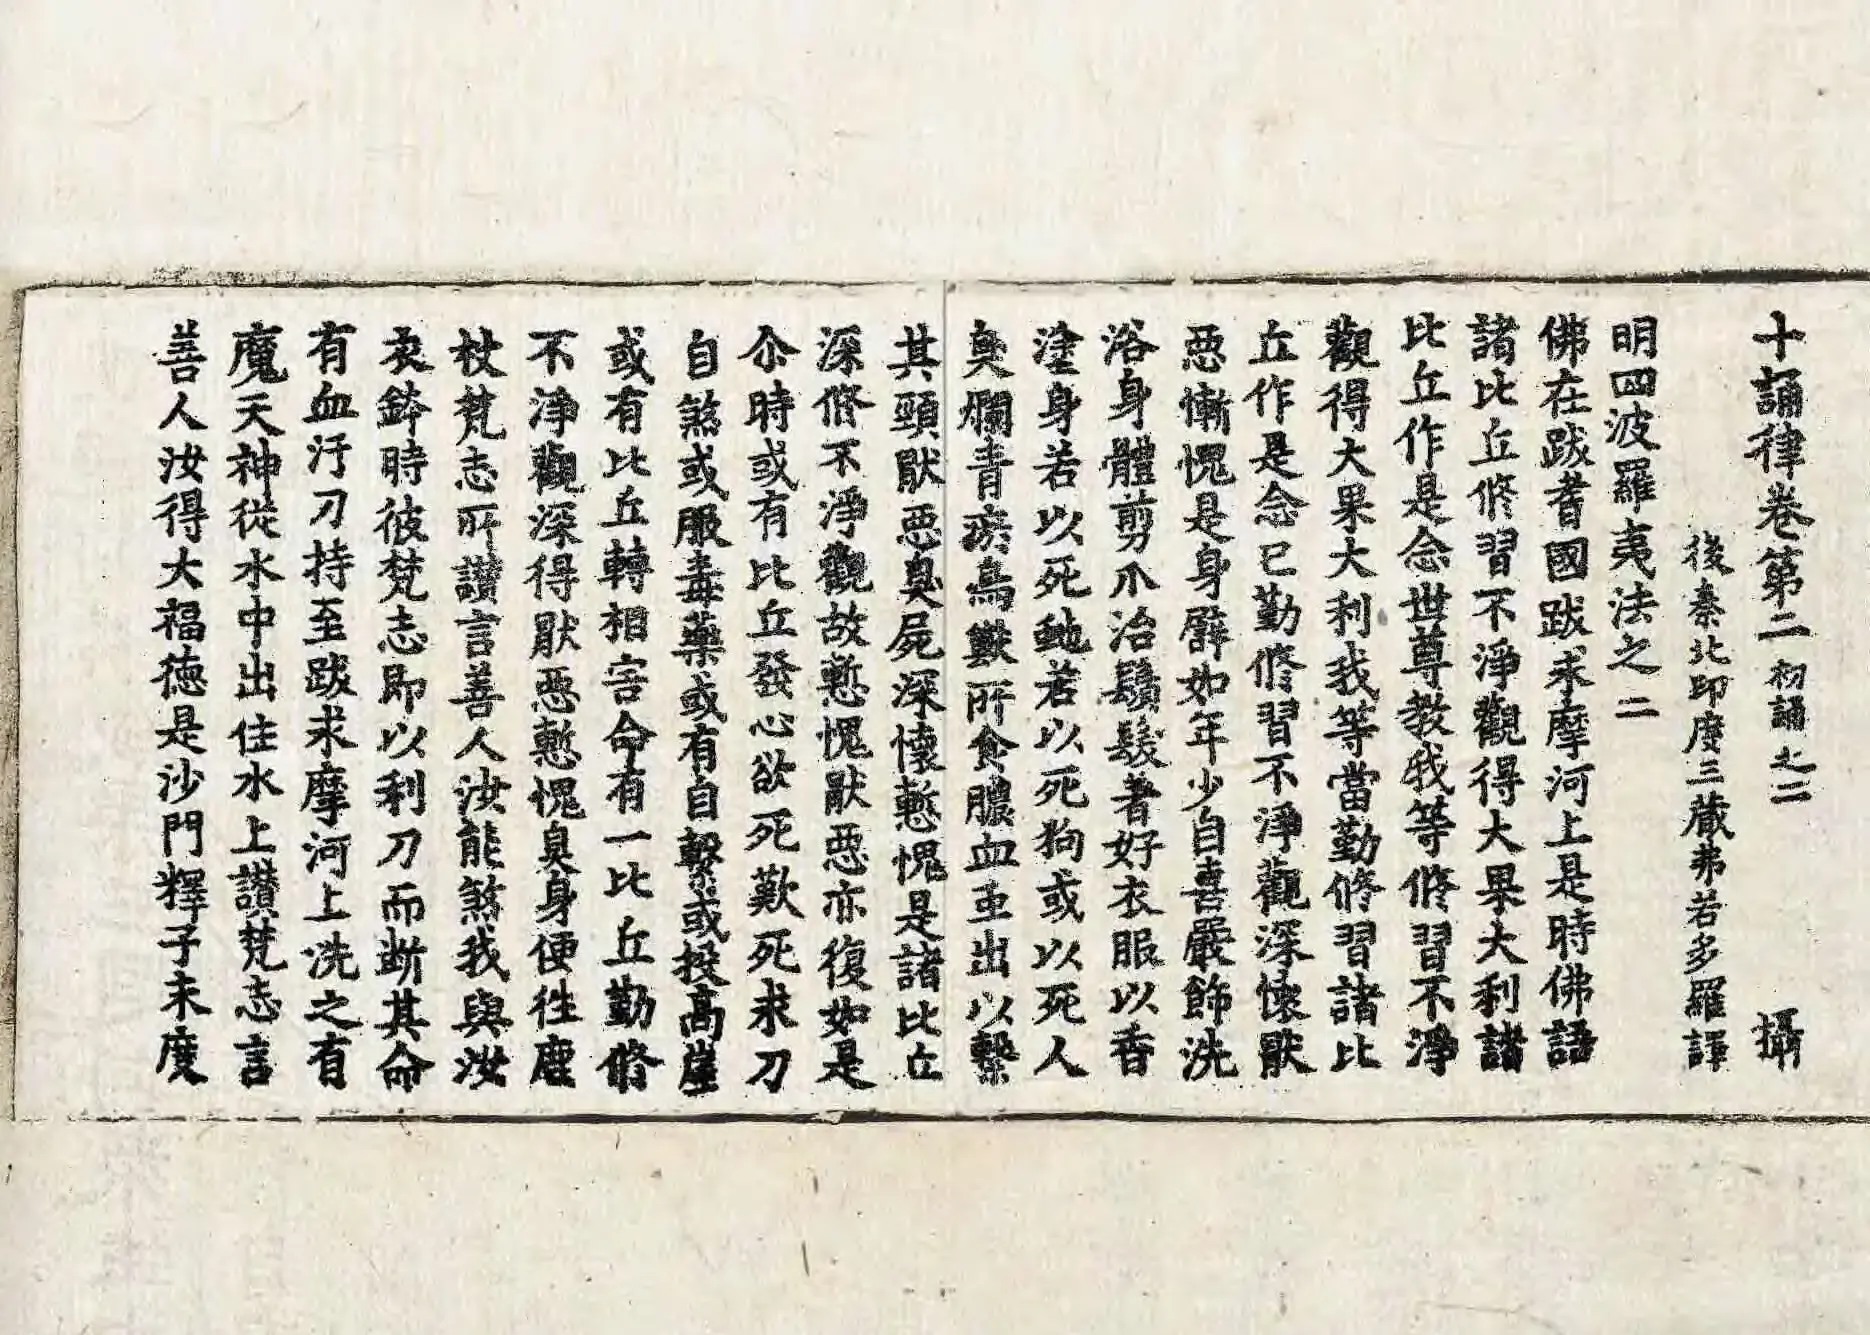 十誦律卷第二 初誦之二 攝
後秦北印度三藏弗若多羅譯
明四波羅夷法之二
佛在跋耆國跋求摩河上是時佛語
諸比丘修習不淨觀得大果大利諸
比丘作是念世尊教我等修習不淨
觀得大果大利我等當勤修習諸比
丘作是念已勤修習不淨觀深懷猒
惡慚愧是身臂如年少自喜嚴飾洗
浴身體剪爪治鬚髮著好衣服以香
塗身若以死虵若以死狗或以死人
臭爛青瘀鳥獸所食膿血虫出以繫
其頸猒惡臭屍深懷慙愧是諸比丘
深修不淨觀故慙愧猒惡亦復如是
尒時或有比丘發心欲死歎死求刀
自煞或服毒藥或有自繫或投高崖
或有比丘轉相害命有一比丘勤修
不淨觀深得猒惡慙愧臭身便往鹿
杖梵志所讚言善人汝能煞我與汝
衣鉢時彼梵志即以利刀而斷其命
有血汙刀持至跋求摩河上洗之有
魔天神從水中出住水上讚梵志言
善人汝得大福德是沙門釋子未度